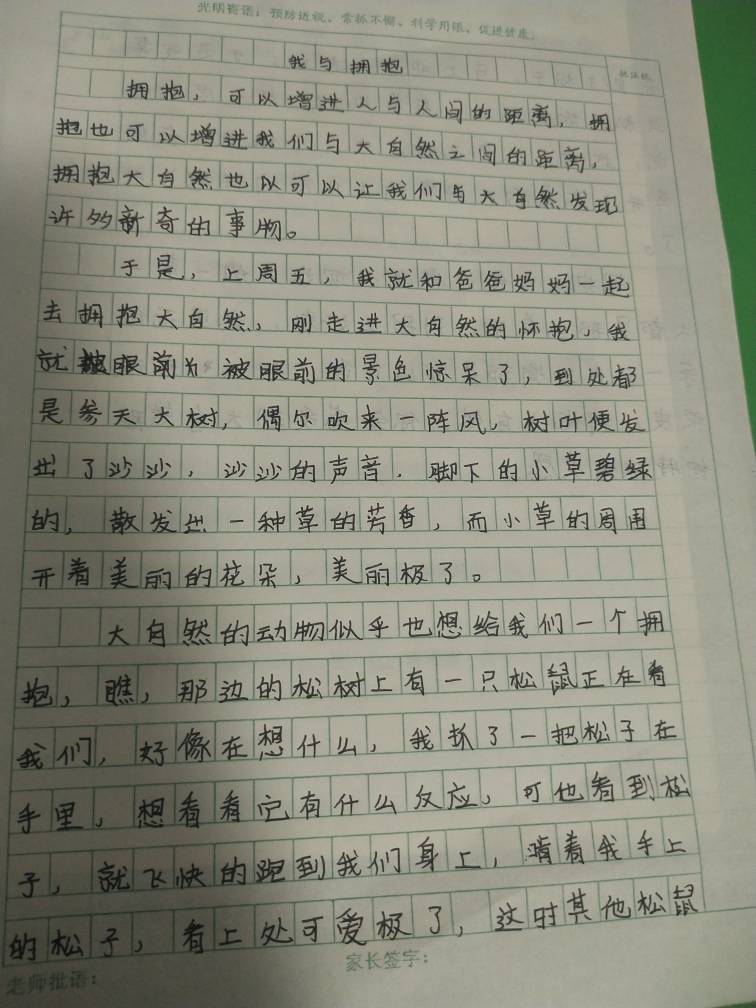 光明寄语：预防近视、常抓不懈、科学用眼、促进健康。
我与拥抱
拥抱，可以增进人与人间的距离，拥
抱也可以增进我们与大自然之间的距离，
拥抱大自然也以可以让我们与大自然发现
许多新奇的事物。
于是，上周五，我就和爸爸妈妈一起
去拥抱大自然，刚走进大自然的怀抱，我
就被眼前的景色惊呆了，到处都
是参天大树，偶尔吹来一阵风，树叶便发
出了沙沙，沙沙的声音．脚下的小草碧绿
的，散发出一种草的芳香，而小草的周围
开着美丽的花朵，美丽极了。
大自然的动物似乎也想给我们一个拥
抱，瞧，那边的松树上有一只松鼠正在看
我们，好像在想什么，我抓了一把松子在
手里，想看看它有什么反应，可他看到松
子，就飞快的跑到我们身上，啃着我手上
的松子，看上处可爱极了，这时其他松鼠
家长签字：
老师批语：